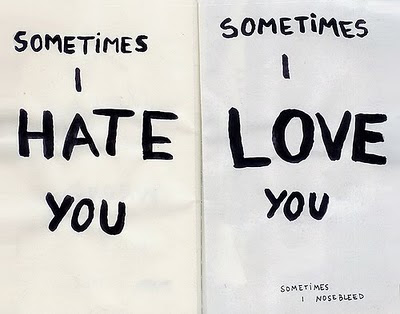 SOMETiMES
I
HATE
YOU
SOMETiMES
I
LOVE
YOU
SOMETiMES
I NOSEBLEED